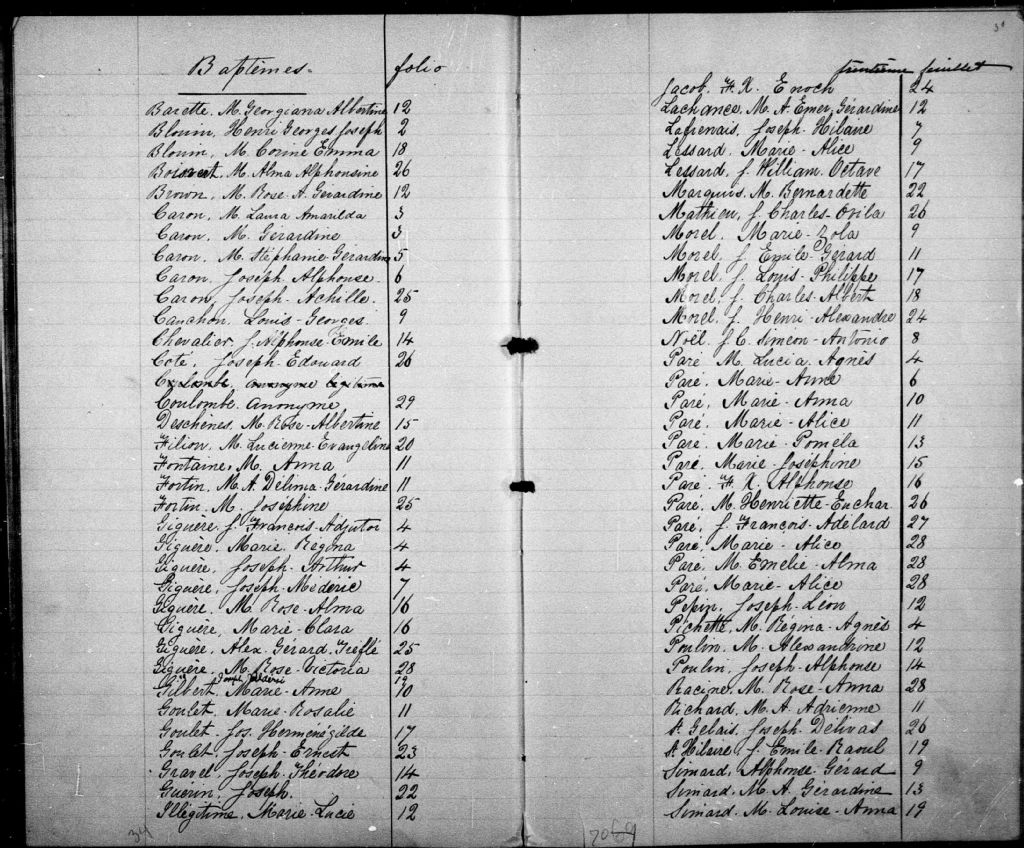 Baptêmes. folio
Barette, M. Georgiana Albertine 12
Blouin, Henri Georges Joseph 2
Blouin, M. Corine Emma 18
Boisvert, M. Alma Alphonsine 26
Brown, M. Rose-A. Gérardine 12
Caron, M. Laura Amarilda 3
Caron, M. Gérardine 3
Caron, M. Stéphanie-Gérardine 5
Caron, Joseph-Alphonse 6
Caron, Joseph-Achille. 25
Cauchon, Louis-Georges. 9
Chevalier, J. Alphonse Emile 14
Coté, Joseph-Edouard 26
Coulombe, anonyme légitime
Coulombe, anonyme 29
Deschênes, M. Rose-Albertine 15
Filion, M. Lucienne-Evangéline 20
Fontaine, M. Anna 11
Fortin, M. A. Délima-Gérardine 11
Fortin, M. Joséphine 25
Giguère, J. François-Adjutor 4
Giguère, Marie-Régina 4
Giguère, Joseph-Arthur 4
Giguère, Joseph-Médéric 7
Giguère, M. Rose-Alma 16
Giguère, Marie-Clara 16
Giguère, Alex. Gérard. Treflé 25
Giguère, M. Rose-Victoria 28
Joseph 19
Gilbert, Marie-Anne 10
Goulet, Marie-Rosalie 11
Goulet, Jos. Herménégilde 17
Goulet, Joseph-Ernest 23
Gravel, Joseph-Théodore 14
Guérin, Joseph. 22
Illégitime, Marie-Lucie 12
34
feuillet
Jacob, F. X. Enoch 24
Lachance, M. A. Emer, Gérardine 12
Lafrenais, Joseph-Hilaire 7
Lessard, Marie-Alice 9
Lessard, J. William-Octave 17
Marquis, M. Bernardette 22
Mathieu, J. Charles-Ovila 26
Morel, Marie-Zola 9
Morel, J. Emile-Gérard 11
Morel, J. Louis-Philippe 17
Morel, J. Charles-Albert 18
Morel, J. Henri-Alexandre 24
Noël, J. C. Siméon-Antonio 8
Paré, M. Lucia Agnès 4
Paré, Marie-Anne 6
Paré, Marie-Anna 10
Paré, Marie-Alice 11
Paré, Marie-Pomela 13
Paré, Marie-Joséphine 15
Paré, F. X. Alphonse 16
Paré, M. Henriette-Euchar. 26
Paré, J. François-Adélard 27
Paré, Marie-Alice 28
Paré, M. Emélie-Alma 28
Paré, Marie-Alice 28
Pepin, Joseph-Léon 12
Pichette, M. Régina-Agnès 4
Poulin, M. Alexandrine 12
Poulin, Joseph-Alphonse 14
Racine, M. Rose-Anna 28
Richard, M. A. Adrienne 11
St Gelais, Joseph Délivas 26
St Hilaire, J. Emile-Raoul 19
Simard, Alphonse Gérard 9
Simard, M. A. Gérardine 13
Simard, M. Louise-Anna 19